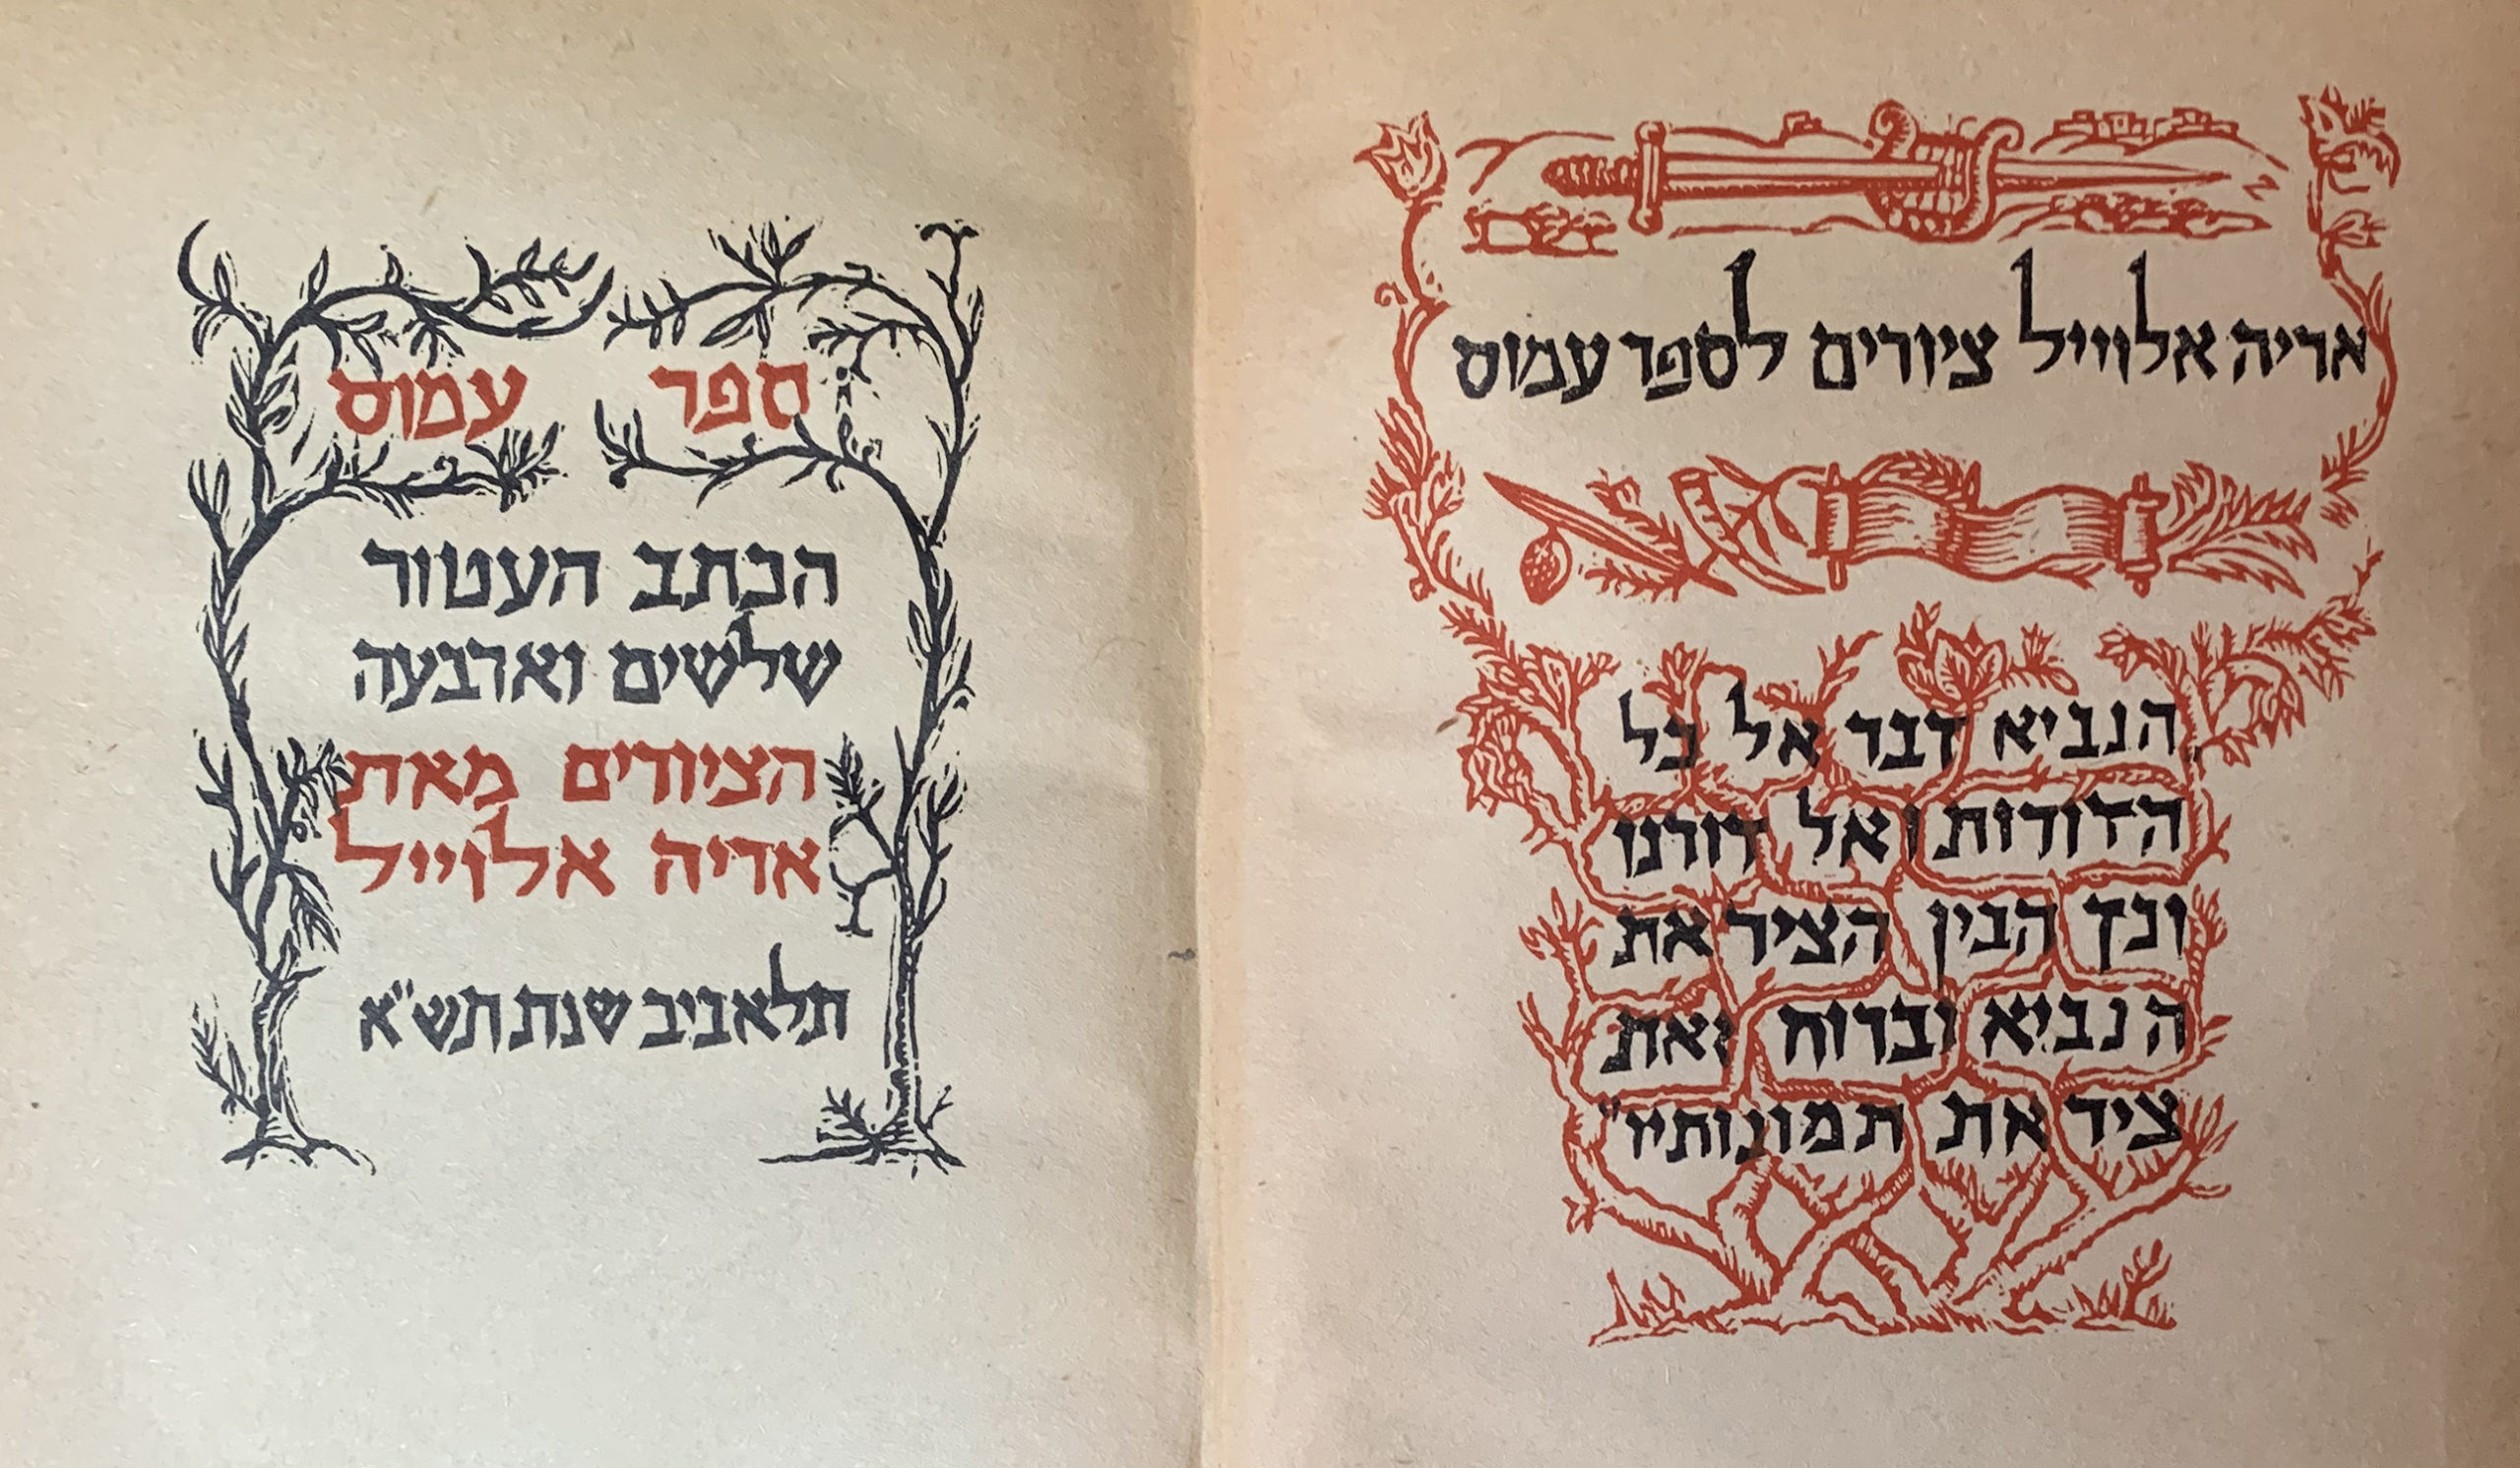 אריה אלווייל ציורים לספר עמוס
הנביא דבר אל כל
הדורות ואל דורנו
וכך הבין הציר את
הנביא וברוח זאת
ציר את תמונותיו"
ספר עמוס
הכתב העטור
שלשים וארבעה
הציורים מאת
אריה אלווייל
תל אביב שנת תש"א